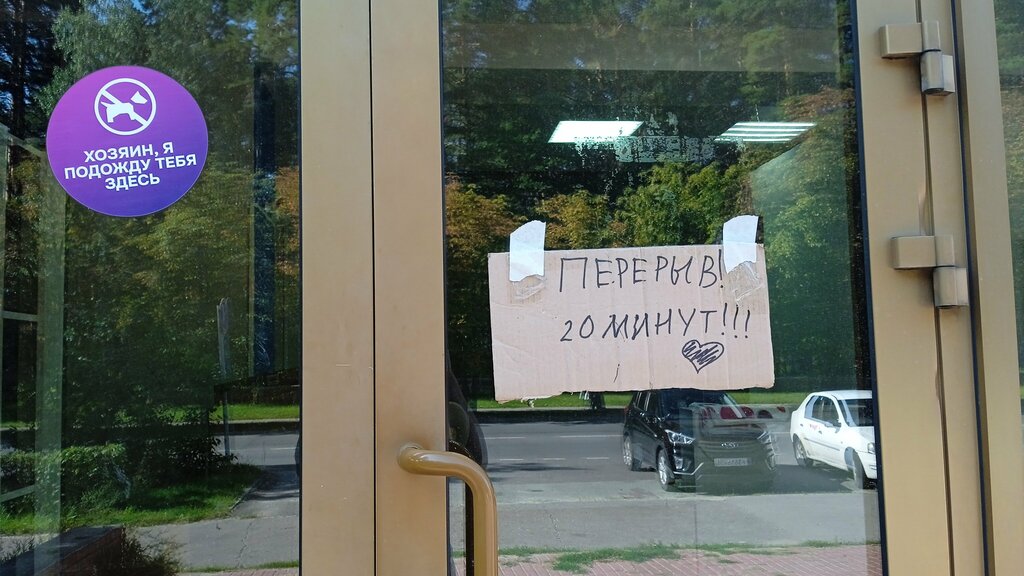 ХОЗЯИН, Я
ПОДОЖДУ ТЕБЯ
ЗДЕСЬ
ПЕРЕРЫВ!
20 МИНУТ!!!